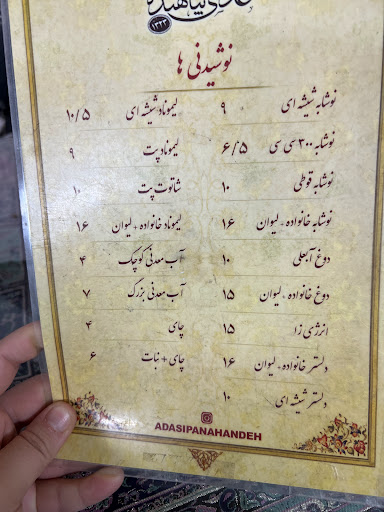 ۱۳۲۳
نوشیدنی ها
نوشابه شیشه ای ۹ لیموناد شیشه ای ۱۰/۵
نوشابه ۳۰۰ سی سی ۶/۵ لیموناد پت ۹
نوشابه قوطی ۱۰ شاتوت پت ۱۰
نوشابه خانواده + لیوان ۱۶ لیموناد خانواده + لیوان ۱۶
دوغ آبعلی ۱۰ آب معدنی کوچک ۴
دوغ خانواده + لیوان ۱۵ آب معدنی بزرگ ۷
انرژی زا ۱۵ چای ۴
دلستر خانواده + لیوان ۱۶ چای + نبات ۶
دلستر شیشه ای ۱۰
ADASIPANAHANDEH